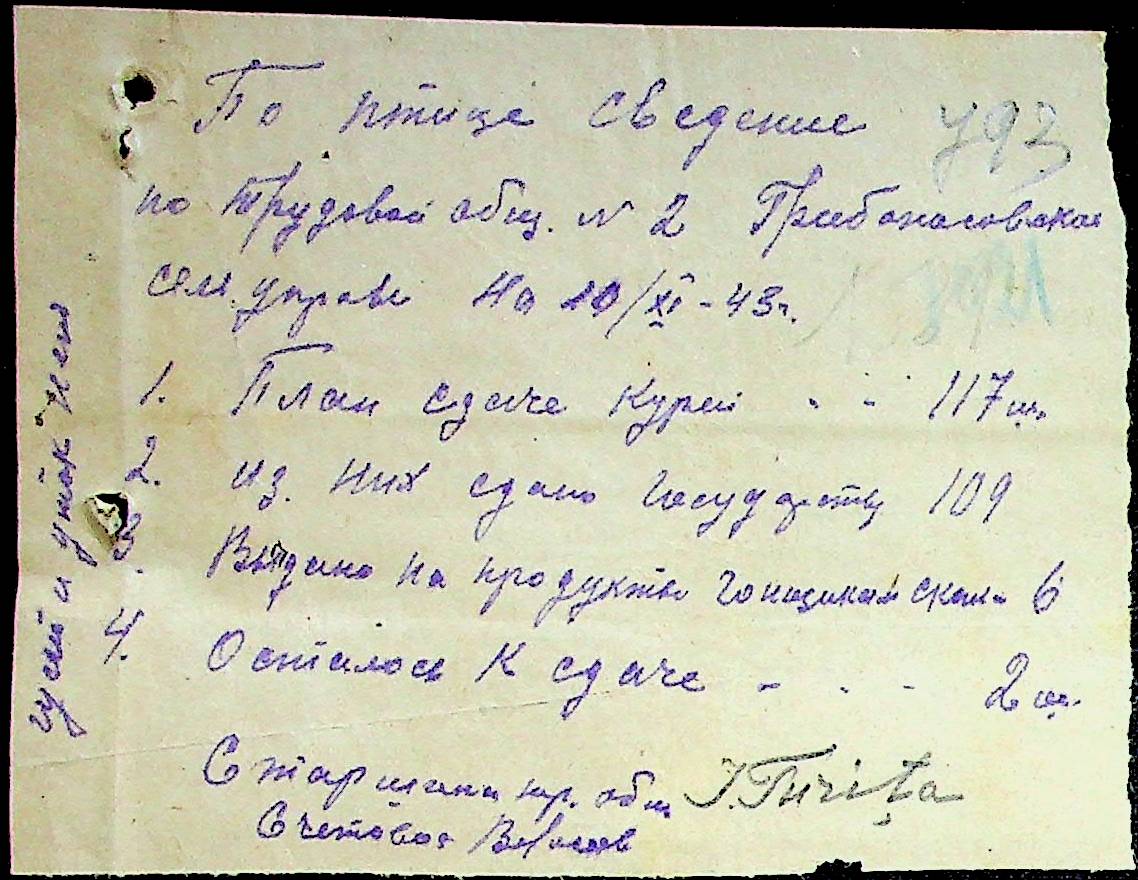 По птице сведение
793
по трудовой общ. № 2 Грибоносовской
сел управе на 20/XI - 43 г.
1. План сдаче курей - - - 117 ш.
2. из них сдано государству 109
3. Выдано на продукты гонщикам скота 6
4. Осталось к сдаче - - - 2 ш.
Старшина тр. общ
Счетовод
гусей и уток нет